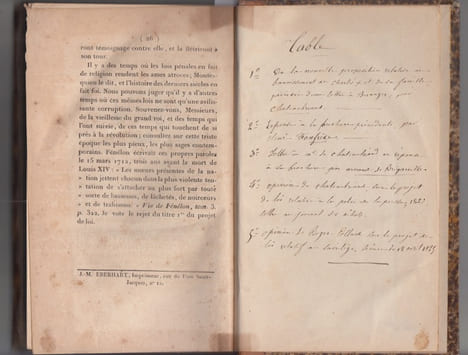 ( 26 )
ront témoignage contre elle, et la flétriront à
son tour.
Il y a des temps où les lois pénales en fait
de religion rendent les ames atroces; Montes-
quieu le dit, et l'histoire des derniers siècles en
fait foi. Nous pouvons juger qu'il y a d'autres
temps où ces mêmes lois ne sont qu'une avilis-
sante corruption. Souvenez-vous, Messieurs,
de la vieillesse du grand roi, et des temps qui
l'ont suivie, de ces temps qui touchent de si
près à la révolution; consultez sur cette triste
époque les plus pieux, les plus sages contem-
porains. Fénélon écrivait ces propres paroles
le 15 mars 1712, trois ans avant la mort de
Louis XIV : « Les mœurs présentes de la na-
» tion jettent chacun dans la plus violente ten-
» tation de s'attacher au plus fort par toute
» sorte de bassesses, de lâchetés, de noirceurs
» et de trahisons. » Vie de Fénélon, tom. 3.
p. 322. Je vote le rejet du titre 1er du projet
de loi.
J.-M. EBERHART, Imprimeur, rue du Foin Saint-
Jacques, n° 12.
Table
1° De la nouvelle proposition relative au
bannissement de Charles X et de sa famille
par
Chateaubriand.
2° Réponse à la brochure précédente par
3° Lettre à Mr de Chateaubriand en réponse
à sa brochure par
4° opinion de Chateaubriand sur le projet
de loi relatif à la police de la presse, 1827
lettre au journal des débats.
5° opinion de Royer Collard sur le projet de
loi relatif au sacrilège, 1825